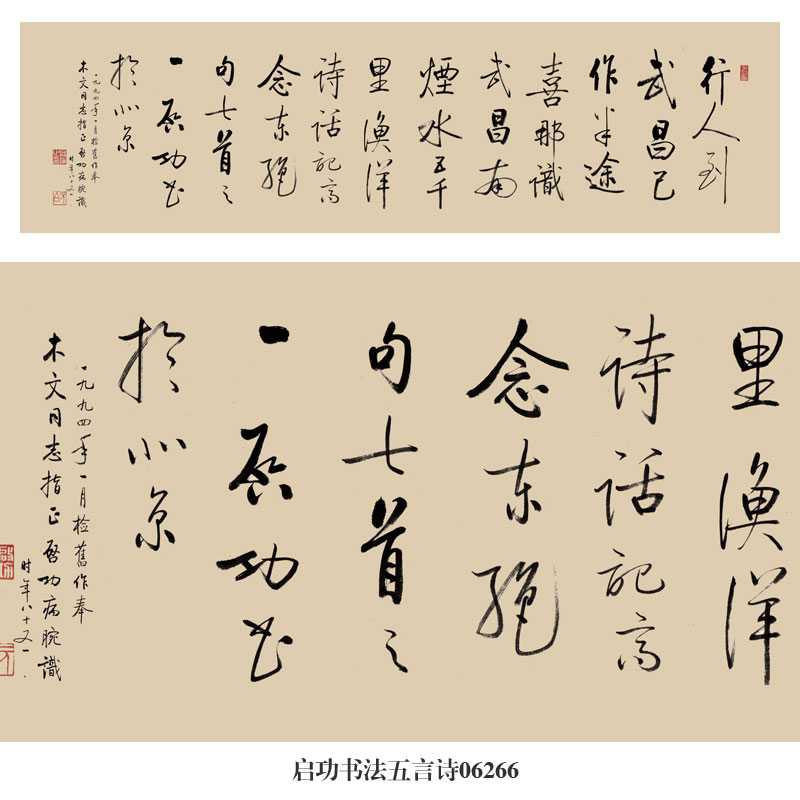 行人到
武昌已
作半途
喜那識
武昌南
煙水五千
里漁洋
诗话记高
念东绝
句七首之
一启功书
於北京
一九九四年一月检舊作奉
木文同志指正启功病腕識
时年八十又一
里漁洋
诗话记高
念东绝
句七首之
一启功书
於北京
一九九四年一月检舊作奉
木文同志指正启功病腕識
时年八十又一
启功书法五言诗06266